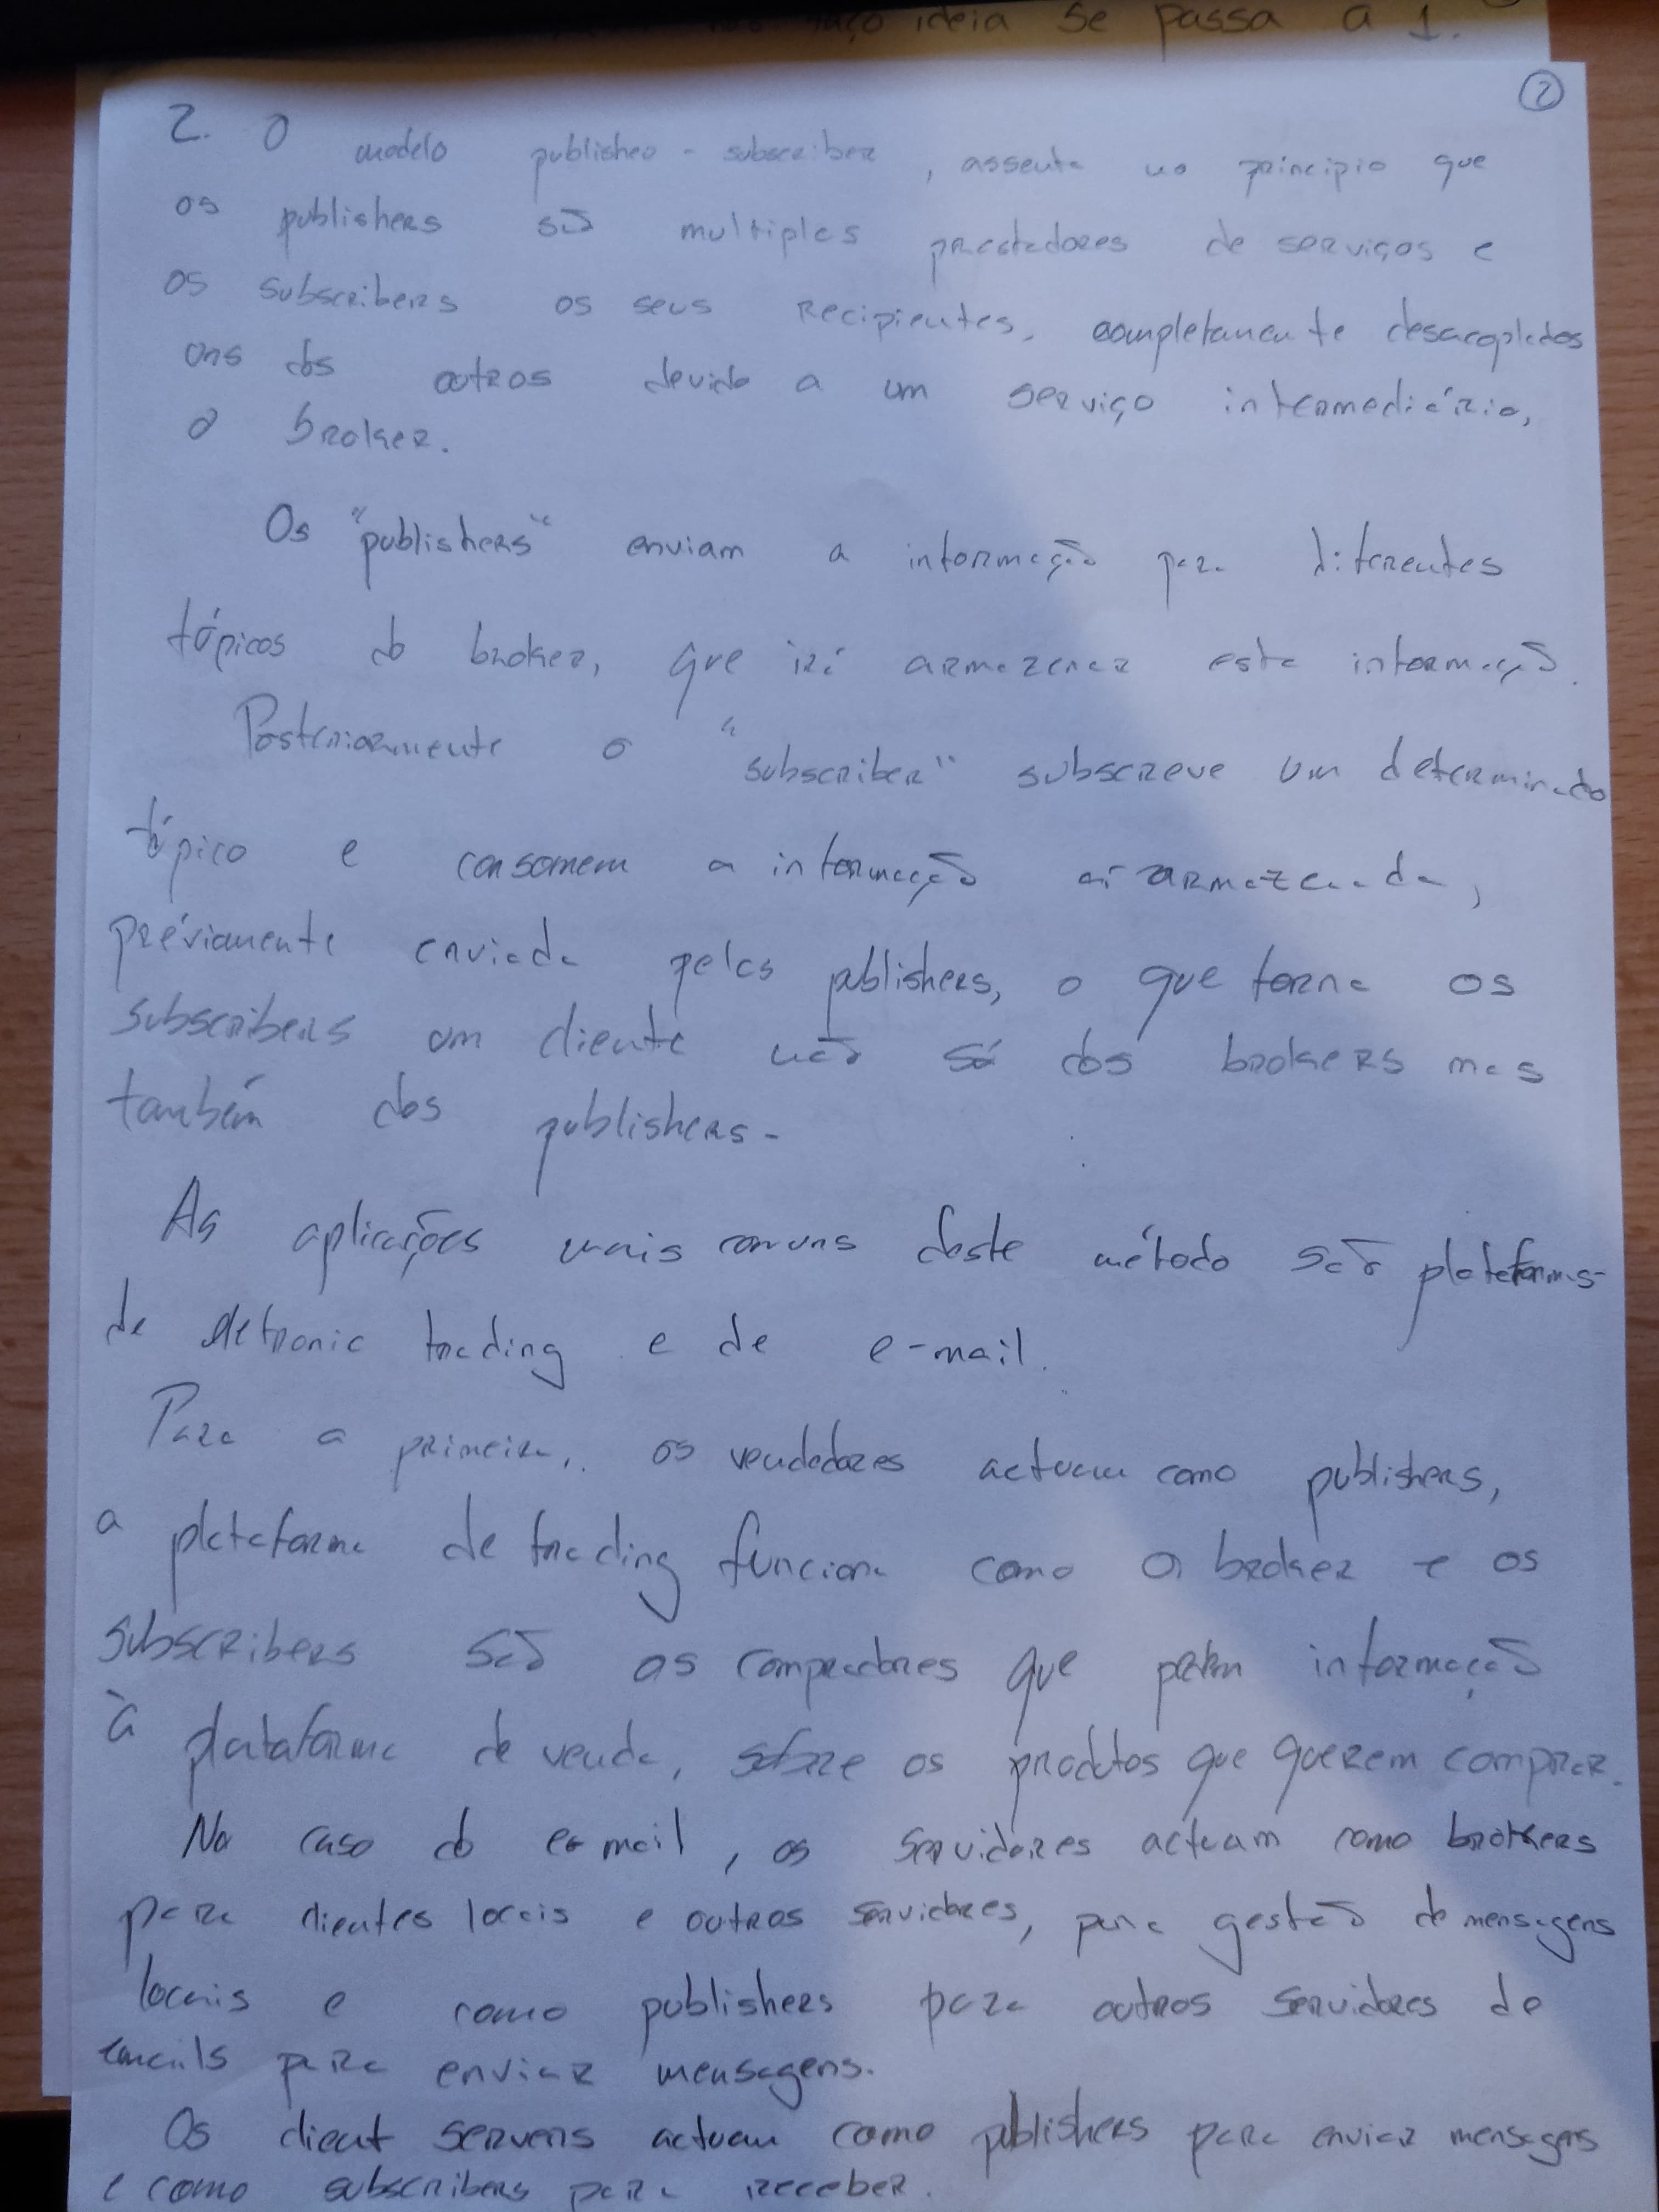 faço ideia se passa a 1.
2
2. O modelo publisher - subscriber, assenta no principio que
os publishers são multiplos prestadores de serviços e
os subscribers os seus recipientes, completamente desacoplados
uns dos outros devido a um serviço intermediário,
o broker.
Os "publishers" enviam a informação para diferentes
tópicos do broker, que irá armazenar esta informação.
Posteriormente o "subscriber" subscreve um determinado
tópico e consomem a informação aí armazenada,
préviamente enviada pelos publishers, o que torna os
subscribers um cliente não só dos brokers mas
também dos publishers.
As aplicações mais comuns deste método são plataformas
de eletronic trading e de e-mail.
Para a primeira, os vendedores actuam como publishers,
a plataforma de trading funciona como o broker e os
subscribers são os compradores que pedem informação
à plataforma de venda, sobre os produtos que querem comprar.
No caso do e-mail, os servidores actuam como brokers
para clientes locais e outros servidores, para gestão de mensagens
locais e como publishers para outros servidores de
emails para enviar mensagens.
Os client servers actuam como publishers para enviar mensagens
e como subscribers para receber.